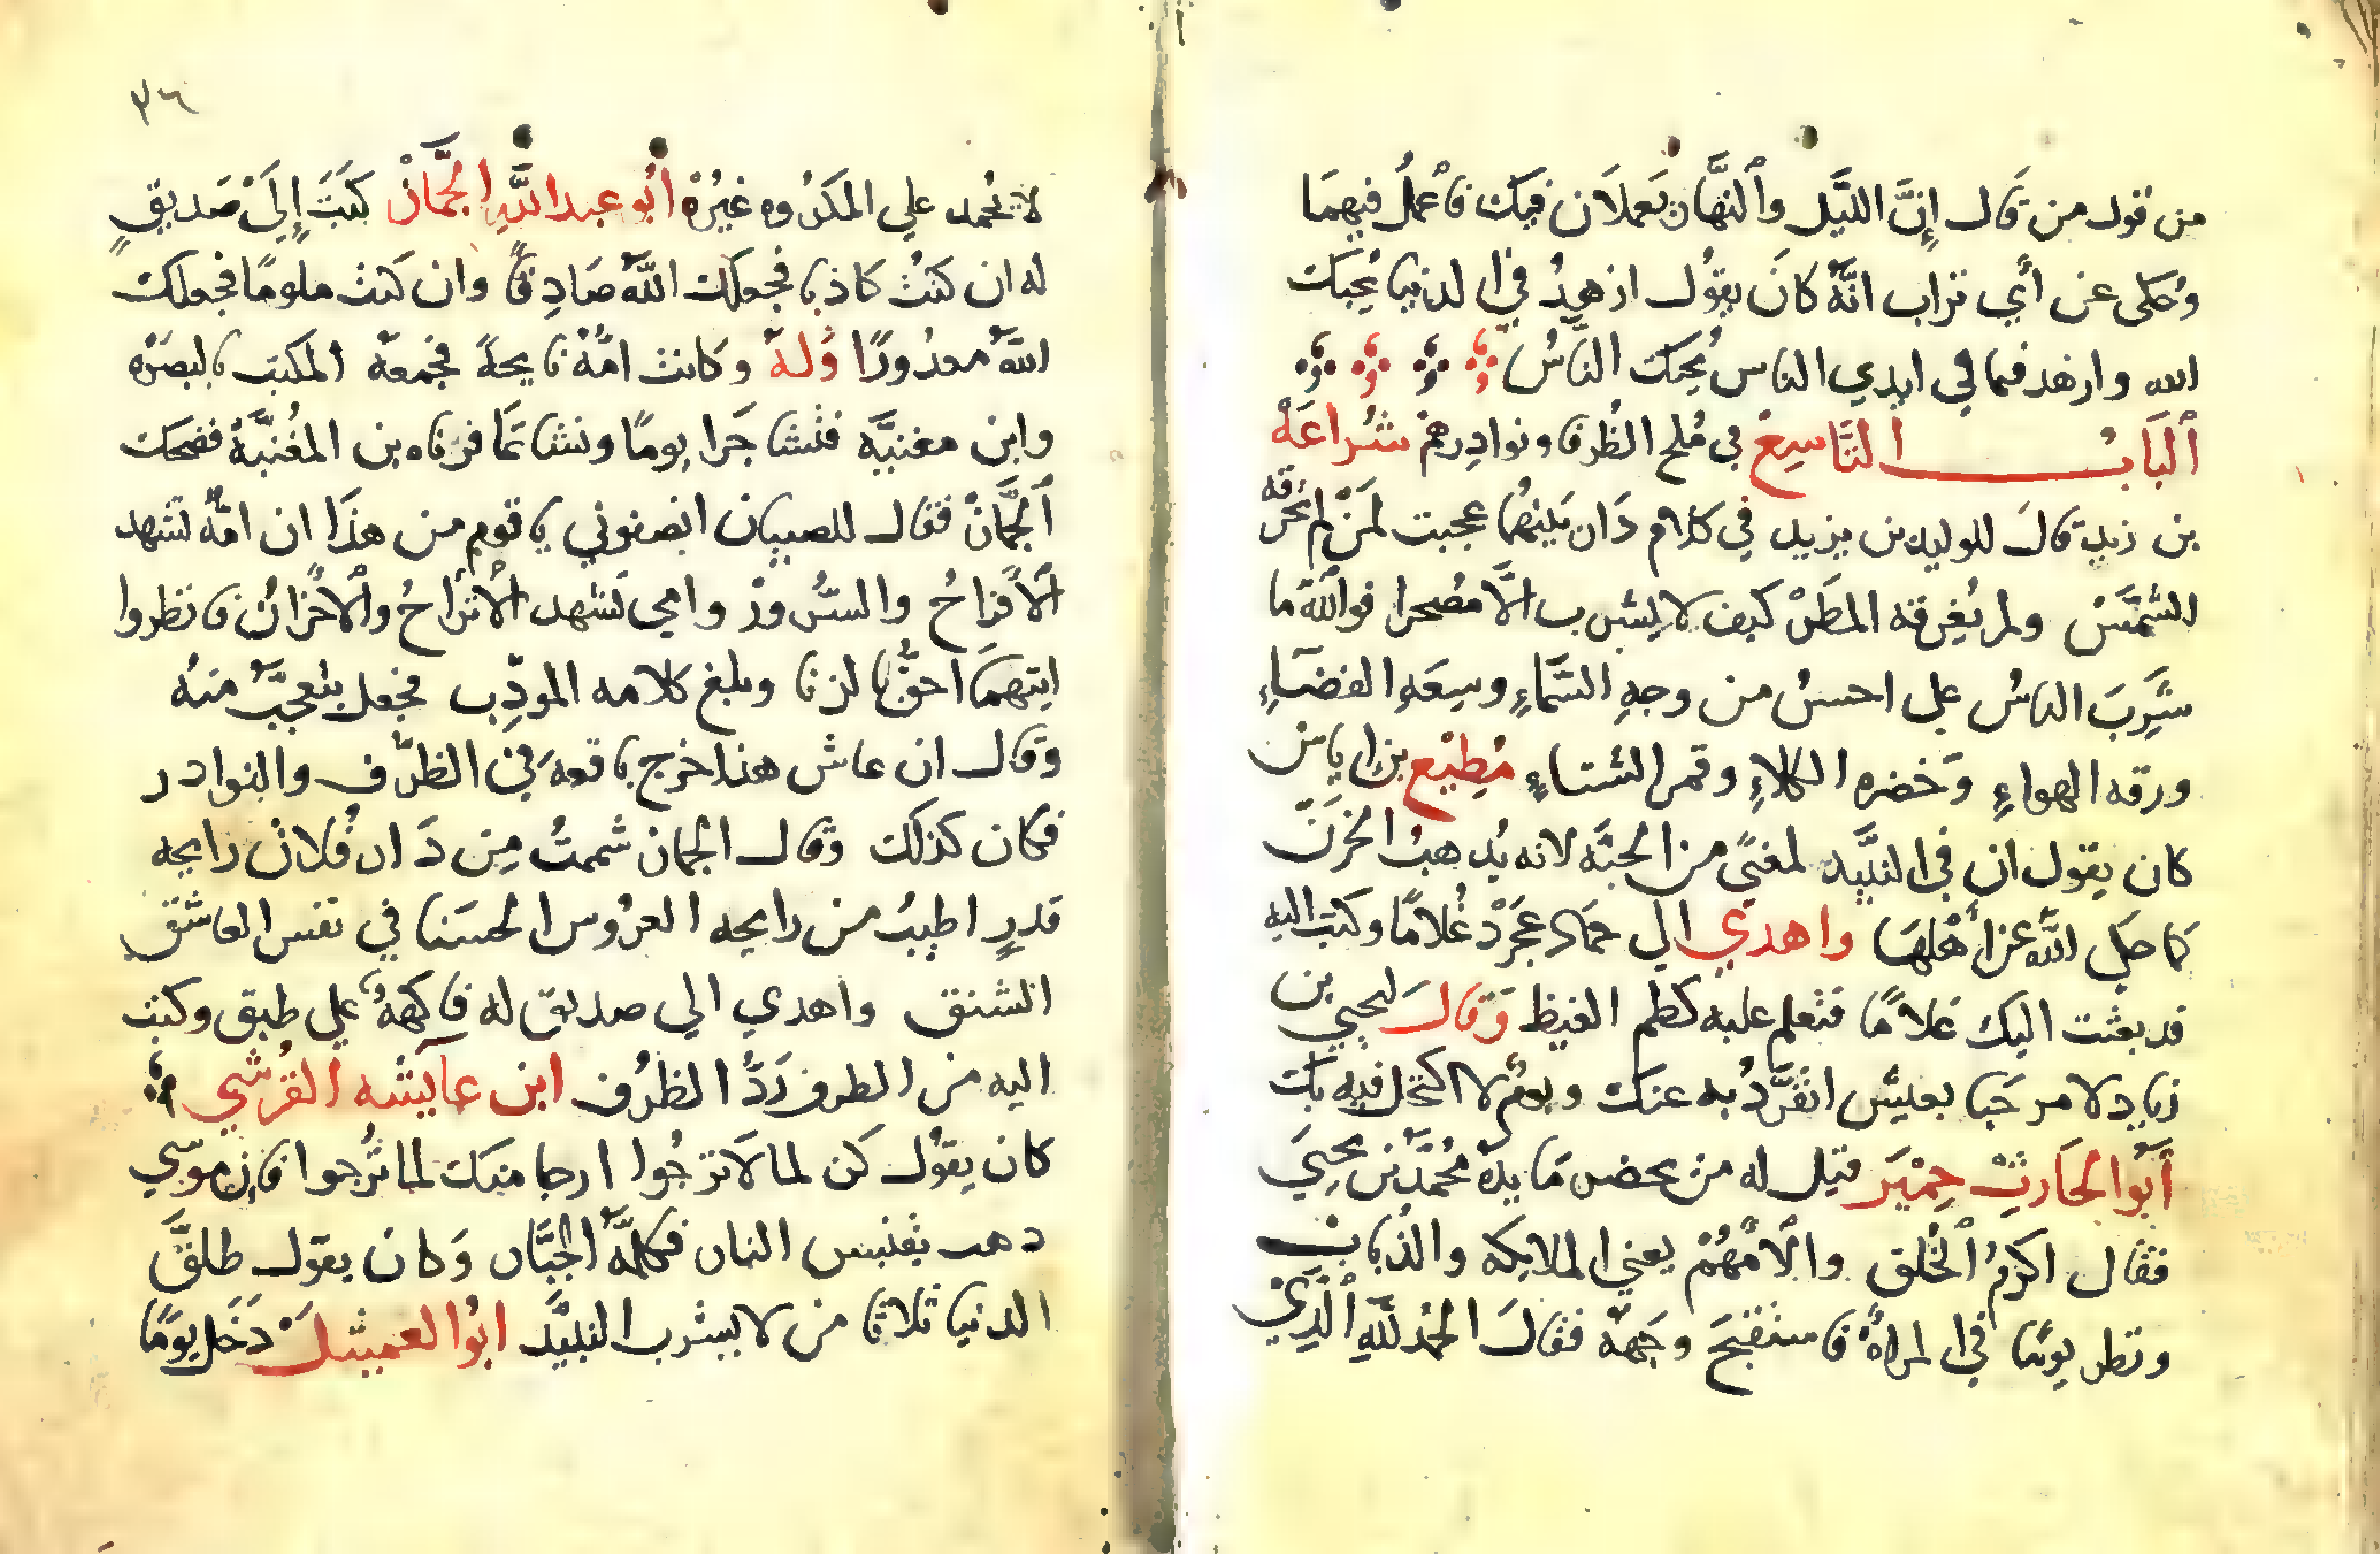 من قول من قَال إنَّ اللَّيل وٱلنهَّار يَعملاَن فيك فاعْملُ فيهمَا
وحُكى عن أبي تراب انَّهُ كانَ يقوُل ازهدُ في الدنيا يُحبك
الله وازهد فيما في ايدي الناس يُحبك النَّاسُ
ٱلبَابُ التَّاسِعْ في مُلح الظُرفا ونوادِرهمْ شُراعَهْ
بن زيد قالَ للوليد بن يزيد في كلام دَار بَينهُما عجبت لمَنْ لم تحُرقه
الشمَّسْ ولم يُغِرقه المطَرْ كيف لا يشرب الَّا مصُحرا فوالله ما
شَرِبَ الناسُ على احسنُ من وجهِ السَّماءِ وسِعَهِ الفضاءِ
ورقه الهواءِ وَخضره الكلاءِ وقمر الشتاءِ مُطِيْع بن اياسْ
كان يقول ان في النبيَّد لمعنيً من الجنَّه لانه يُدهبُ الحَزَنَ
كما حكي اللَّه عَن أهْلهَا واهدي الى حَماد عَجَرْد غُلامًا وكتب اليه
قد بعثت اليك غلامًا فتعلم عليه كظم الغيظ وَقالَ ليحيي بن
زياد لا مرحَبا بعيش انفَرَّدُ به عنك ويوم لا اكتحل فيه بك
أبَوُا الحَارثِ حِمْيَر قيل له من يحضر مَايدهَ مُحمَّدَ بن يحيَي
فقال اكرمُ ٱلخُلق وٱلأمُهُمْ يعني الملايكه والذُبابْ
ونظر يومًا في المراهْ فاستقبحَ وجَههُ فقالَ الحُمدُ للَّهِ ٱلَّذِيْ
٣٦
لا يُحمد علي المكرُوه غيرُهْ أبُو عبد اللَّه الجمَّازْ كتبَ إلَىَ صَديقٍ
له ان كنتُ كاذبا فجعلك اللَّهُ صَادِقًا وان كنتُ ملومًا فجعلك
اللهَّ معدُورًا وَلهُ وكانت امُّهُ نايحهً فجمعهُ المكتب بالبصَرْه
وابن مغنيَّه فتشاجَرا يومًا وتشاتمَا فزناه بن المغُنيَّةُ فضحك
ٱلجمَّازْ فقال للصبيان انصفوني يا قوم من هذَا ان امُّهُ تشهد
ٱلأفراحُ والسُّرورْ وامي تشهد ٱلأترْاحُ وٱلأحْزانْ فانظروا
ايتهمَا احقُّ بالزنا وبلغ كلامه المودِّب فجعل يتعجبَّ منهُ
وَقال ان عاش هذا خرج باقعهَ في الظرَّف والنوادر
فكان كذلك وَقال الجماز شممتُ مِن دَار فُلانْ رايحه
قدرٍ اطيبُ من رايحه العرُوس الحسَنا في نفس العاشق
الشنق واهدي الي صديق له فاكههُ علي طبق وكتب
اليه من الطرف رَدُّ الظرُف ابن عايشه القُرشي
كان يقوُل كن لما لاَ ترجُوا ارجا منك لما تُرجوا فإن موسى
دهب يقتبس النار فكلمَّهُ الجبَّار وَكان يقول طلقَّ
الدنيا ثلاثا من لا يشرب النبيَّد ابوُا العميثلَ دَخَل يوَمًا